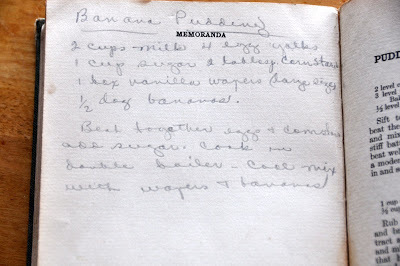 Banana Pudding
MEMORANDA
2 cups milk 4 egg yolks
1 cup sugar 2 tables cornstarch
1 box vanilla wafers (large size)
½ doz bananas.
Beat together eggs & cornstarch
add sugar. Cook in
double boiler - Cool mix
with wafers & bananas
PUDD
2 level
3 level
Ba
½ level
Sift to
beat the
and mix
stiff batt
beat well
a moder
in and a
1 cup
Rub
and be
tract a
and m
that